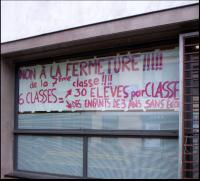 NON À LA FERMETURE !!!!!
de la 7ème classe !!!!
6 CLASSES = ↗ 30 ELEVES par CLASSE
↘ DES ENFANTS DE 3 ANS SANS